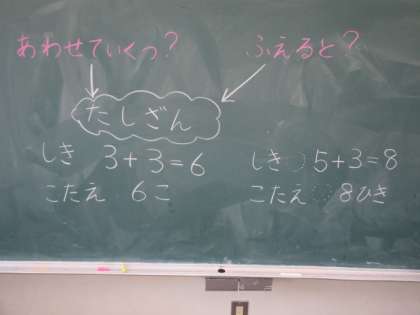 あわせていくつ?
ふえると?
たしざん
しき 3+3=6
こたえ 6こ
しき 5+3=8
こたえ 8ひき